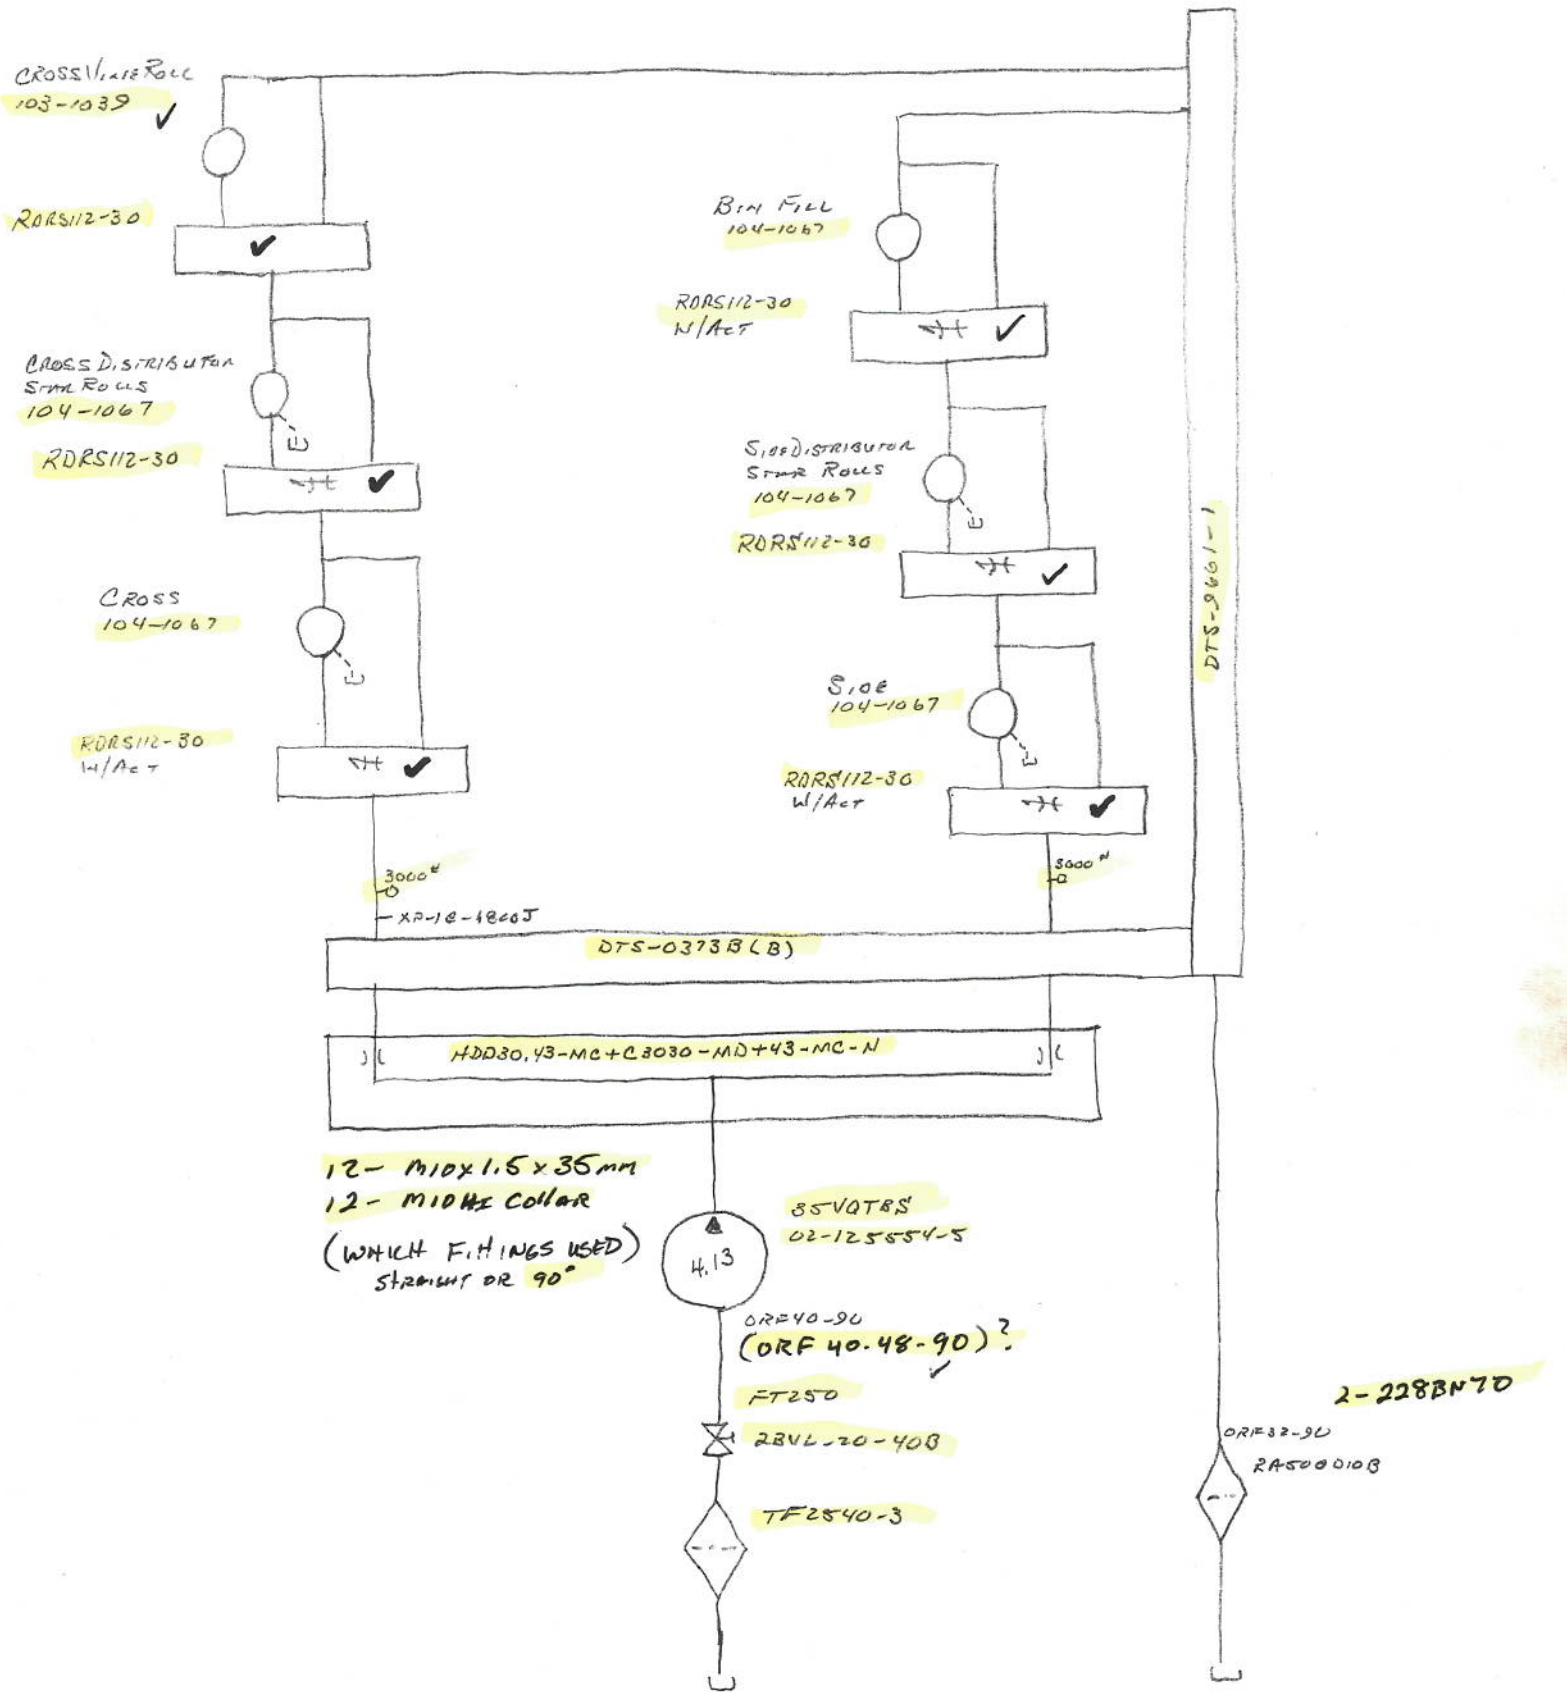 CROSS VINE ROLL
103-1039
RDRS112-30
CROSS DISTRIBUTOR
STAR ROLLS
104-1067
RDRS112-30
CROSS
104-1067
RDRS112-30
W/ACT
3000#
BIN FILL
104-1067
RDRS112-30
W/ACT
SIDE DISTRIBUTOR
STAR ROLLS
104-1067
RDRS112-30
SIDE
104-1067
RDRS112-30
W/ACT
3000#
DTS-0373B(B)
HDD30.43-MC+C3030-MD+43-MC-N
12- M10x1.5x35mm
12- M10HI COllAR
(WHICH FITTINGS USED)
STRAIGHT OR 90°
4.13
35VQTBS
02-125554-5
ORF40-90
(ORF 40-48-90)?
FT250
2BVL-20-40B
TF2540-3
2-228BN70
ORF32-90